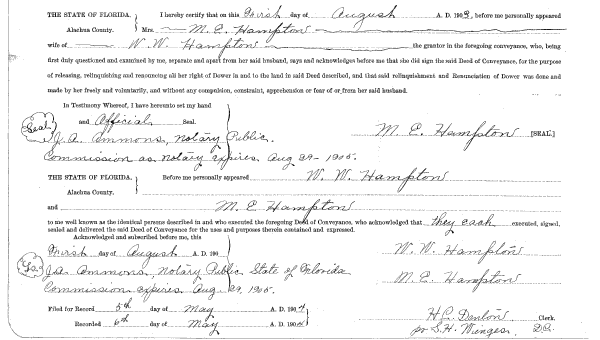 THE STATE OF FLORIDA. I hereby certify that on this First day of August A. D. 1903, before me personally appeared
Alachua County. Mrs. M. E. Hampton
wife of W. W. Hampton the grantor in the foregoing conveyance, who, being
first duly questioned and examined by me, separate and apart from her said husband, says and acknowledges before me that she did sign the said Deed of Conveyance, for the purpose
of releasing, relinquishing and renouncing all her right of Dower in and to the land in said Deed described, and that said relinquishment and Renunciation of Dower was done and
made by her freely and voluntarily, and without any compulsion, constraint, apprehension or fear of or from her said husband.
In Testimony Whereof, I have hereunto set my hand
and Official Seal.
Seal. J. A. Ammons, Notary Public. M. E. Hampton [SEAL.]
Commission as notary expires. Aug 29 - 1905.
THE STATE OF FLORIDA. Before me personally appeared W. W. Hampton
Alachua County.
and M. E. Hampton
to me well known as the identical persons described in and who executed the foregoing Deed of Conveyance, who acknowledged that they each executed, signed,
sealed and delivered the said Deed of Conveyance for the uses and purposes therein contained and expressed.
Acknowledged and subscribed before me, this
First day of August A. D. 190 W. W. Hampton
J. A. Ammons, Notary Public State of Florida M. E. Hampton
Commission expires Aug. 29, 1905.
Filed for Record 5th day of May A. D. 1904 H. C. Denton Clerk.
Recorded 6th day of May A. D. 1904 pr S. H. Wienges. D.C.